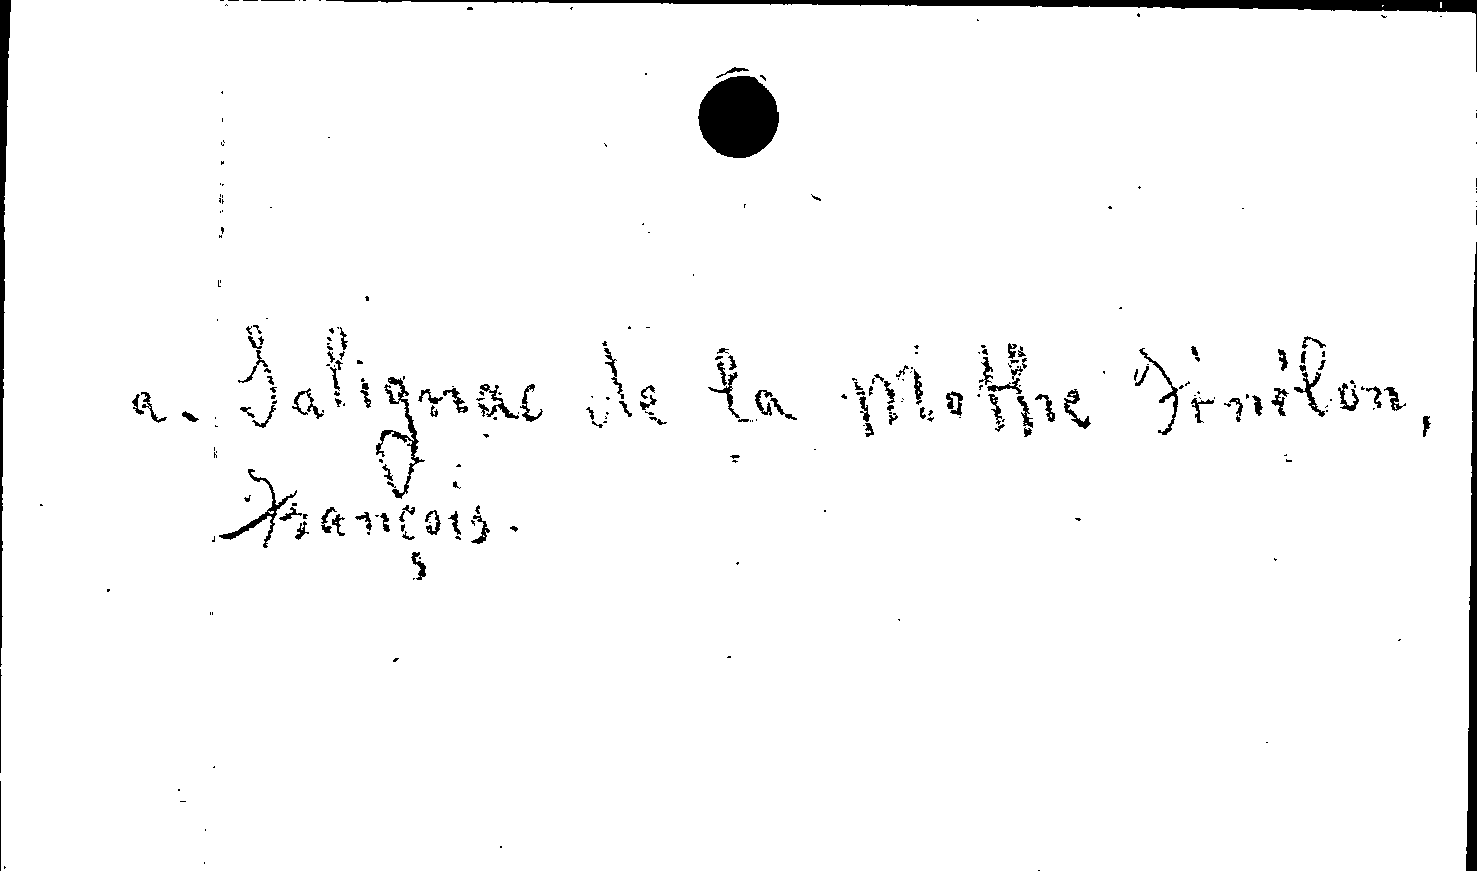 a. Salignac de la Mothe Fénélon,
François.